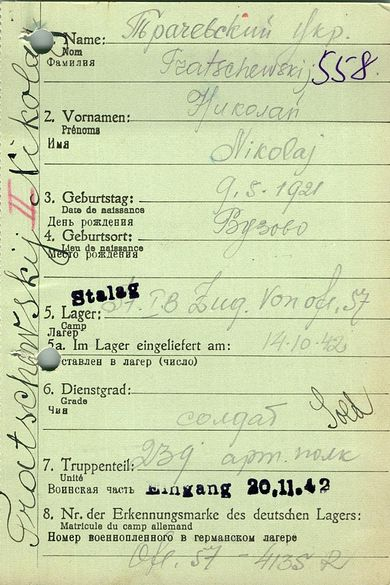 1. Name: Трачевский укр.
Nom
Фамилия Tratschewskij 558.
Николай
2. Vornamen:
Prénoms
Имя
Nikolaj
3. Geburtstag: 9.5.1921
Date de naissance
День рождения
4. Geburtsort: Вузово
Lieu de naissance
Место рождения
Stalag
5. Lager: I B Zug. Von Ofl. 57
Camp
Лагер
5a. Im Lager eingeliefert am: 14.10.42
ставлен в лагер (число)
6. Dienstgrad:
Grade
Чин
солдат Sold
7. Truppenteil: 239 арт. полк
Unité
Воинская часть Eingang 20.11.42
8. Nr. der Erkennungsmarke des deutschen Lagers:
Matricule du camp allemand
Номер военнопленного в германском лагере
Ofl. 57 - 4135
Tratschewskij Nikolaj
II